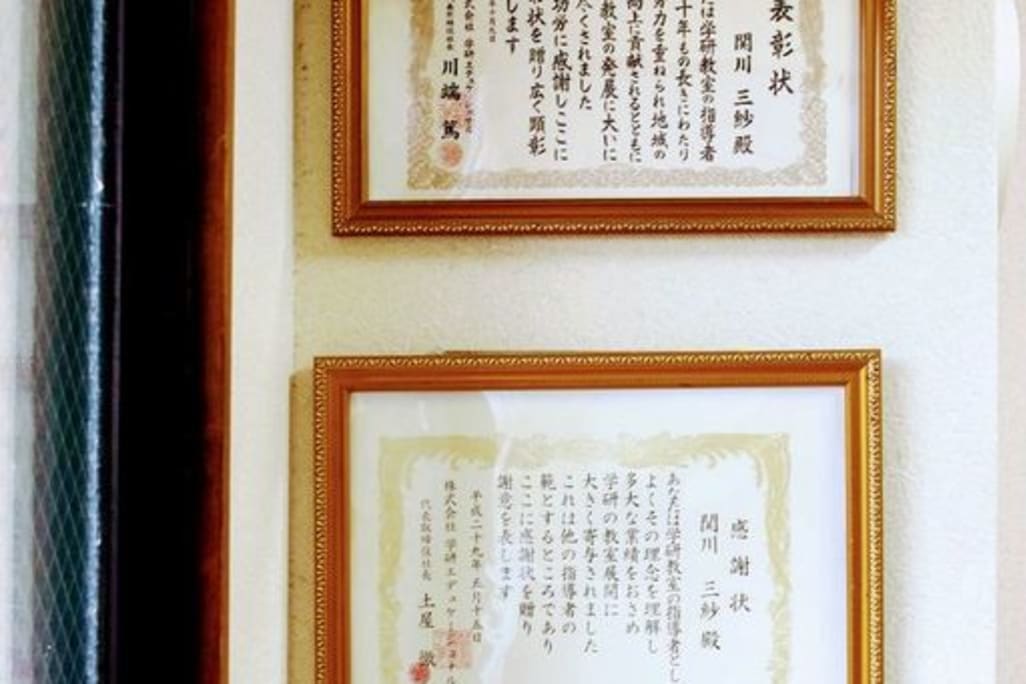 表彰状
関川 三紗 殿
は学研教室の指導者
十年もの長きにわたり
努力を重ねられ地域の
向上に貢献されるとともに
教室の発展に大いに
尽くされました
功労に感謝しここに
状を贈り広く顕彰
します
川端 篤
感謝状
関川 三紗 殿
あなたは学研教室の指導者とし
よくその理念を理解し
多大な業績をおさめ
学研の教室展開に
大きく寄与されました
これは他の指導者の
範とするところであり
ここに感謝状を贈り
謝意を表します
平成二十九年 五月十五日
株式会社 学研エデュケーショナル
代表取締役社長 土屋 徹